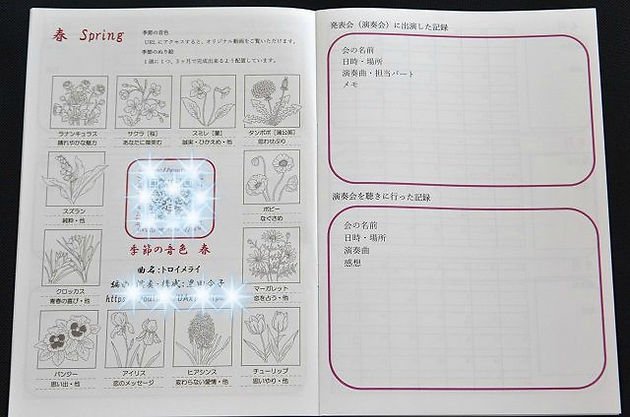 春 Spring
季節の音色
URLにアクセスすると、オリジナル動画をご覧いただけます。
季節のぬり絵
1週に1つ、3ヶ月で完成出来るよう配置しています。
ラナンキュラス
晴れやかな魅力
サクラ［桜］
あなたに微笑む
スミレ［菫］
誠実・ひかえめ・他
タンポポ［蒲公英］
思わせぶり
スズラン
純粋・他
ポピー
なぐさめ
クロッカス
青春の喜び・他
マーガレット
恋を占う・他
季節の音色 春
曲名:トロイメライ
https
パンジー
思い出・他
アイリス
恋のメッセージ
ヒアシンス
変わらない愛情・他
チューリップ
思いやり・他
発表会（演奏会）に出演した記録
会の名前
日時・場所
演奏曲・担当パート
メモ
演奏会を聴きに行った記録
会の名前
日時・場所
演奏曲
感想